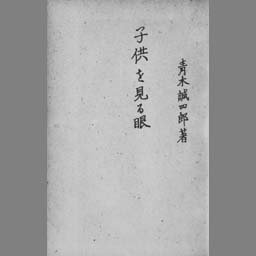 子供を見る眼
青木誠四郎著